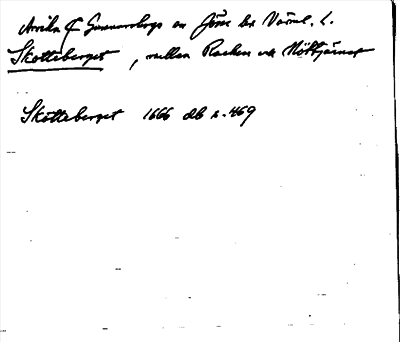 Arvika Gunnarskogs sn Jösse hd Värml. l.
Skotteberget, mellan Racken och Nöktjärnet
Skotteberget 1666 db s. 469